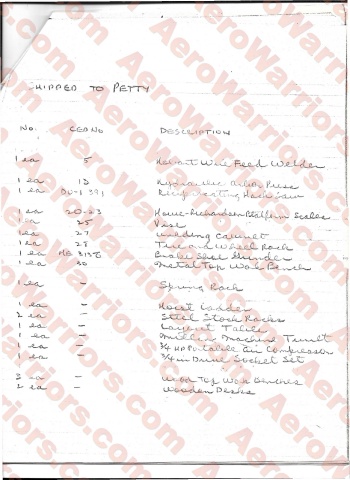 SHIPPED TO PETTY
NO. CED NO DESCRIPTION
1 ea 5 Wire Feed Welder
1 ea 13 Hydraulic Arbor Press
1 ea DO-1391 Hack Saw
1 ea 20-23 Howe-Richardson Platform Scales
1 ea 25 Vise
1 ea 27 Welding Cabinet
1 ea 28 Tire and Wheel Rack
1 ea ME 3138 Brake Shoe Grinder
1 ea 30 Metal Top Work Bench
1 ea - Spring Rack
1 ea - Hoist Ladder
2 ea - Steel Stock Racks
1 ea - Layout Table
1 ea - Milling Machine Turret
1 ea - 3/4 HP Portable Air Compressor
1 ea - 3/4 in Drive Socket Set
3 ea - Wood Top Work Benches
2 ea - Wooden Desks
AeroWarriors.com